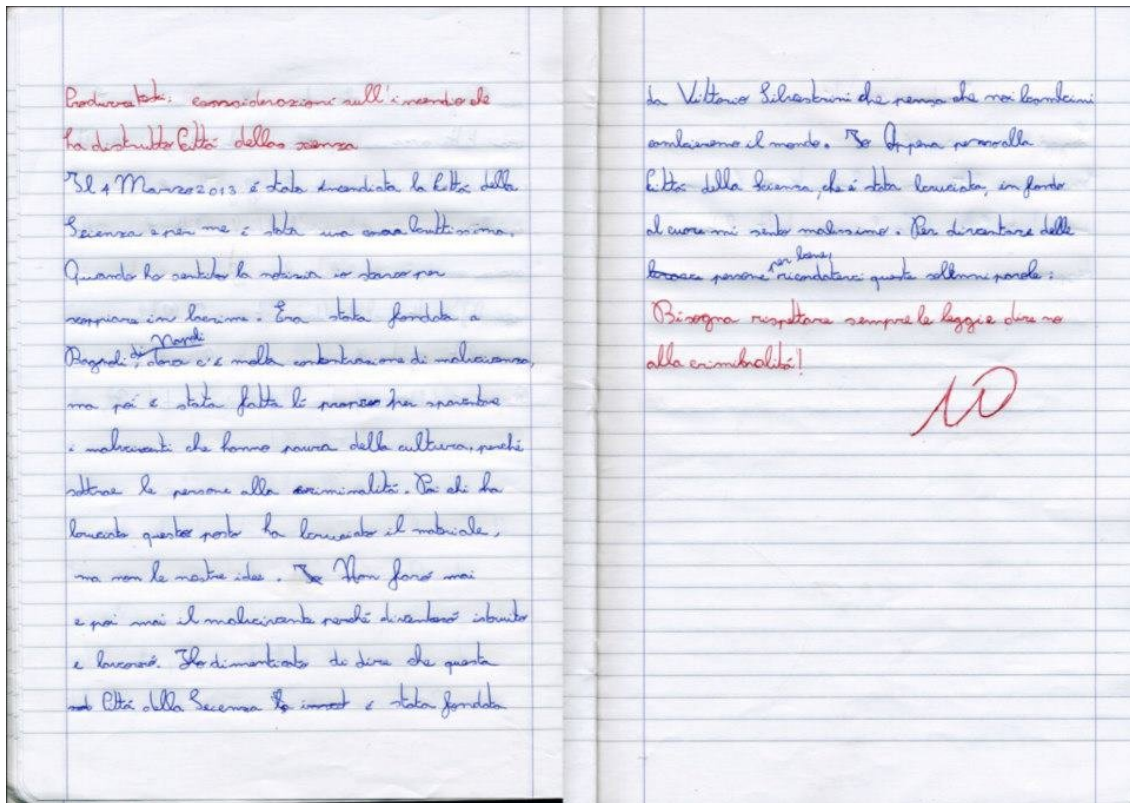 Produzione testi: considerazioni sull'incendio che
ha distrutto Città della scienza
Il 4 Marzo 2013 é stata incendiata la Città della
Scienza e per me é stata una cosa bruttissima.
Quando ho sentito la notizia io stavo per
scoppiare in lacrime. Era stata fondata a
Bagnoli, di Napoli dove c'é molta contentrazione di malvivenza,
ma poi é stata fatta lì proprio per spaventare
i malviventi che hanno paura della cultura, perché
sottrae le persone alla criminalitá. Poi chi ha
bruciato questo posto ha bruciato il materiale,
ma non le nostre idee. Io Non faró mai
e poi mai il malvivente perché diventeró istruito
e lavoreró. Ho dimenticato di dire che questa
Cittá della Scienza é stata fondata
da Vittorio Silvestrini che pensa che noi bambini
cambieremo il mondo. Io Appena penso alla
Cittá della Scienza, che é stata bruciata, in fondo
al cuore mi sento malissimo. Per diventare delle
persone per bene, ricordatevi queste sollenni parole:
Bisogna rispettare sempre le leggi e dire no
alla criminalitá!
10